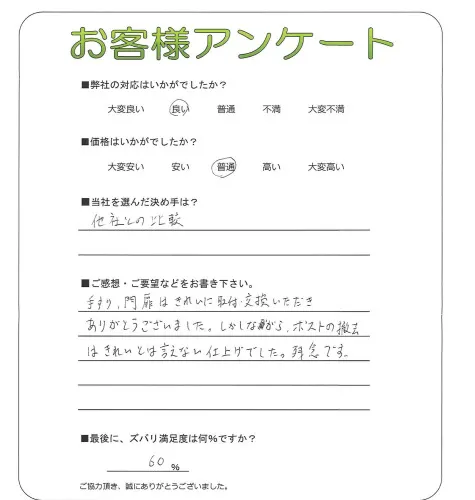 お客様アンケート
■弊社の対応はいかがでしたか？
大変良い 良い 普通 不満 大変不満
■価格はいかがでしたか？
大変安い 安い 普通 高い 大変高い
■当社を選んだ決め手は？
他社との比較
■ご感想・ご要望などをお書き下さい。
手すり、門扉はきれいに取付・交換いただき
ありがとうございました。しかしながら、ポストの撤去
はきれいとは言えない仕上げでした。残念です。
■最後に、ズバリ満足度は何％ですか？
60 %
ご協力頂き、誠にありがとうございました。